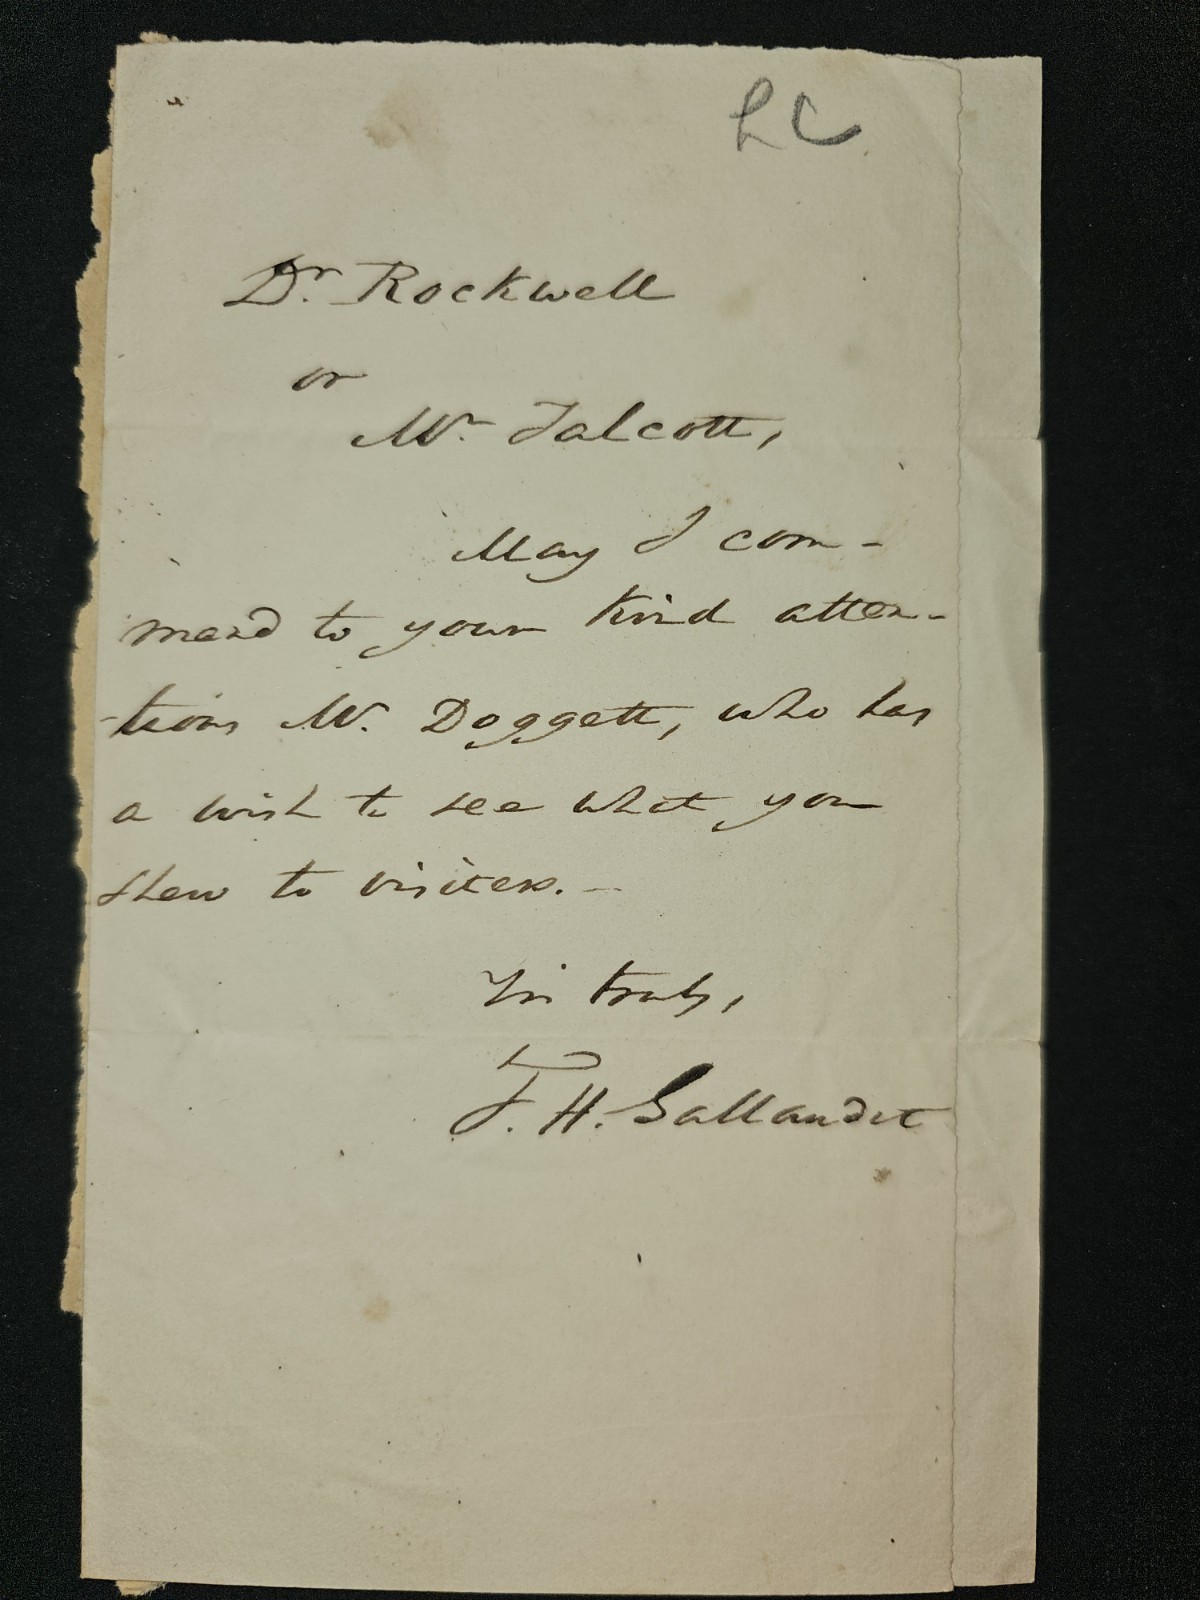 LC
Dr. Rockwell
or
Mr. Talcott,
May I com-
mend to your kind atten-
-tions Mr. Doggett, who has
a wish to see what you
shew to visiters. —
Yrs truly,
T. H. Gallaudet